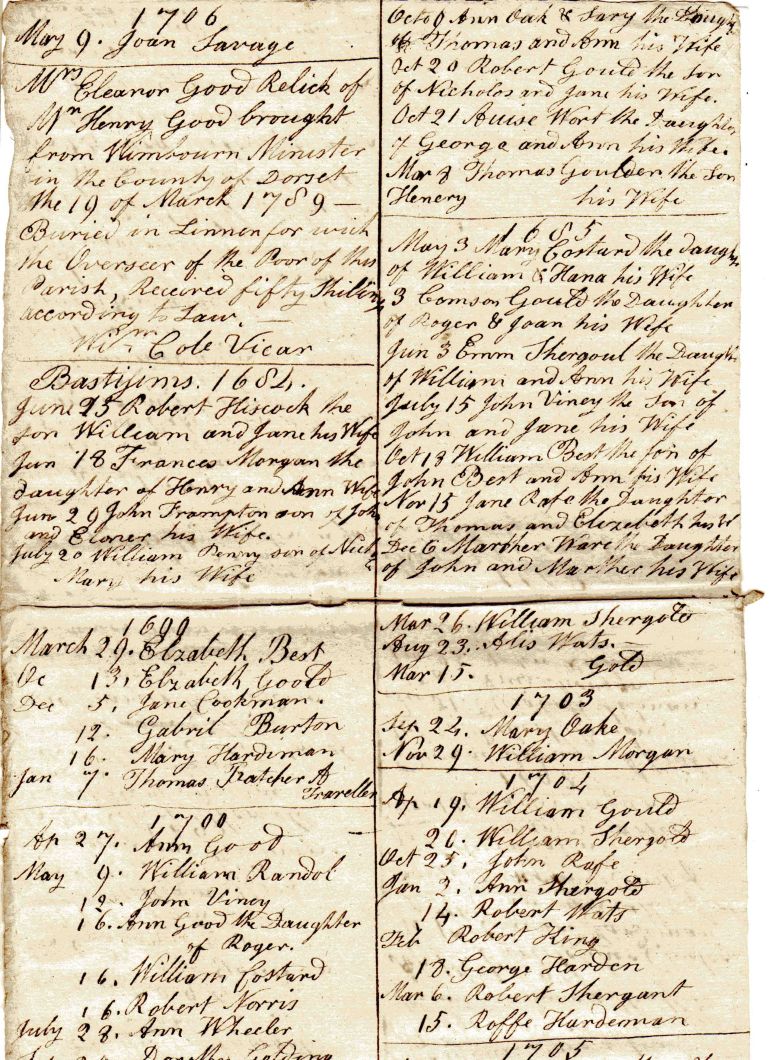 1706
May 9. Joan Savage
Mrs Eleanor Good Relick of
Mr Henry Good brought
from Wimbourn Minister
in the County of Dorset
the 19 of March 1789 —
Buried in Linnen for wich
the Overseer of the Poor of this
Parish, Received fifty Shilling
according to Law. —
Wm Cole Vicar
Bastijims. 1684.
June 25 Robert Hiscock the
son William and Jane his Wife
Jun 18 Frances Morgan the
daughter of Henry and Ann Wife
Jun 29 John Frampton son of John
and Eloner his Wife.
July 20 William Penny son of Nich
Mary his Wife
Octo 9 Ann Oak & Sary the Daugh
of Thomas and Ann his Wife
Oct 20 Robert Gould the son
of Nicholas and Jane his Wife.
Oct 21 Auise Wort the Daughter
of George and Ann his Wife.
Mar 8 Thomas Goulden the Son
Henery his Wife
1685
May 3 Mary Costard the daugh
of William & Hana his Wife
3 Comson Gould the Daughter
of Roger & Joan his Wife
Jun 3 Emm Shergoul the Daugh
of William and Ann his Wife
July 15 John Viney the Son of
John and Jane his Wife
Oct 18 William Best the son of
John Best and Ann his Wife
Nov 15 Jane Rafe the Daughter
of Thomas and Elezebeth his W
Dec 6 Marther Ware the Daughter
of John and Marther his Wife
1699
March 29. Elzabeth Best
Oc 13, Elzabeth Goold
Dec 5, Jane Cookman.
12. Gabril Burton
16. Mary Hardiman
Jan 7. Thomas Fratcher A
Traveller
1700
Ap 27. Ann Good
May 9. William Randol
12. John Viney
16. Ann Good the Daughter
of Roger.
16. William Costard
16. Robert Norris
July 28. Ann Wheeler
Golding
Mar 26. William Shergold
Aug 23. Alis Wats. —
Mar 15. Gold
1703
Sep 24. Mary Oake
Nov 29. William Morgan
1704
Ap 19. William Gould
20. William Shergold
Oct 25, John Rafe
Jan 2. Ann Shergold
14. Robert Wats
Feb Robert King
18. George Harden
Mar 6. Robert Shergant
15. Roffe Hardeman
1705